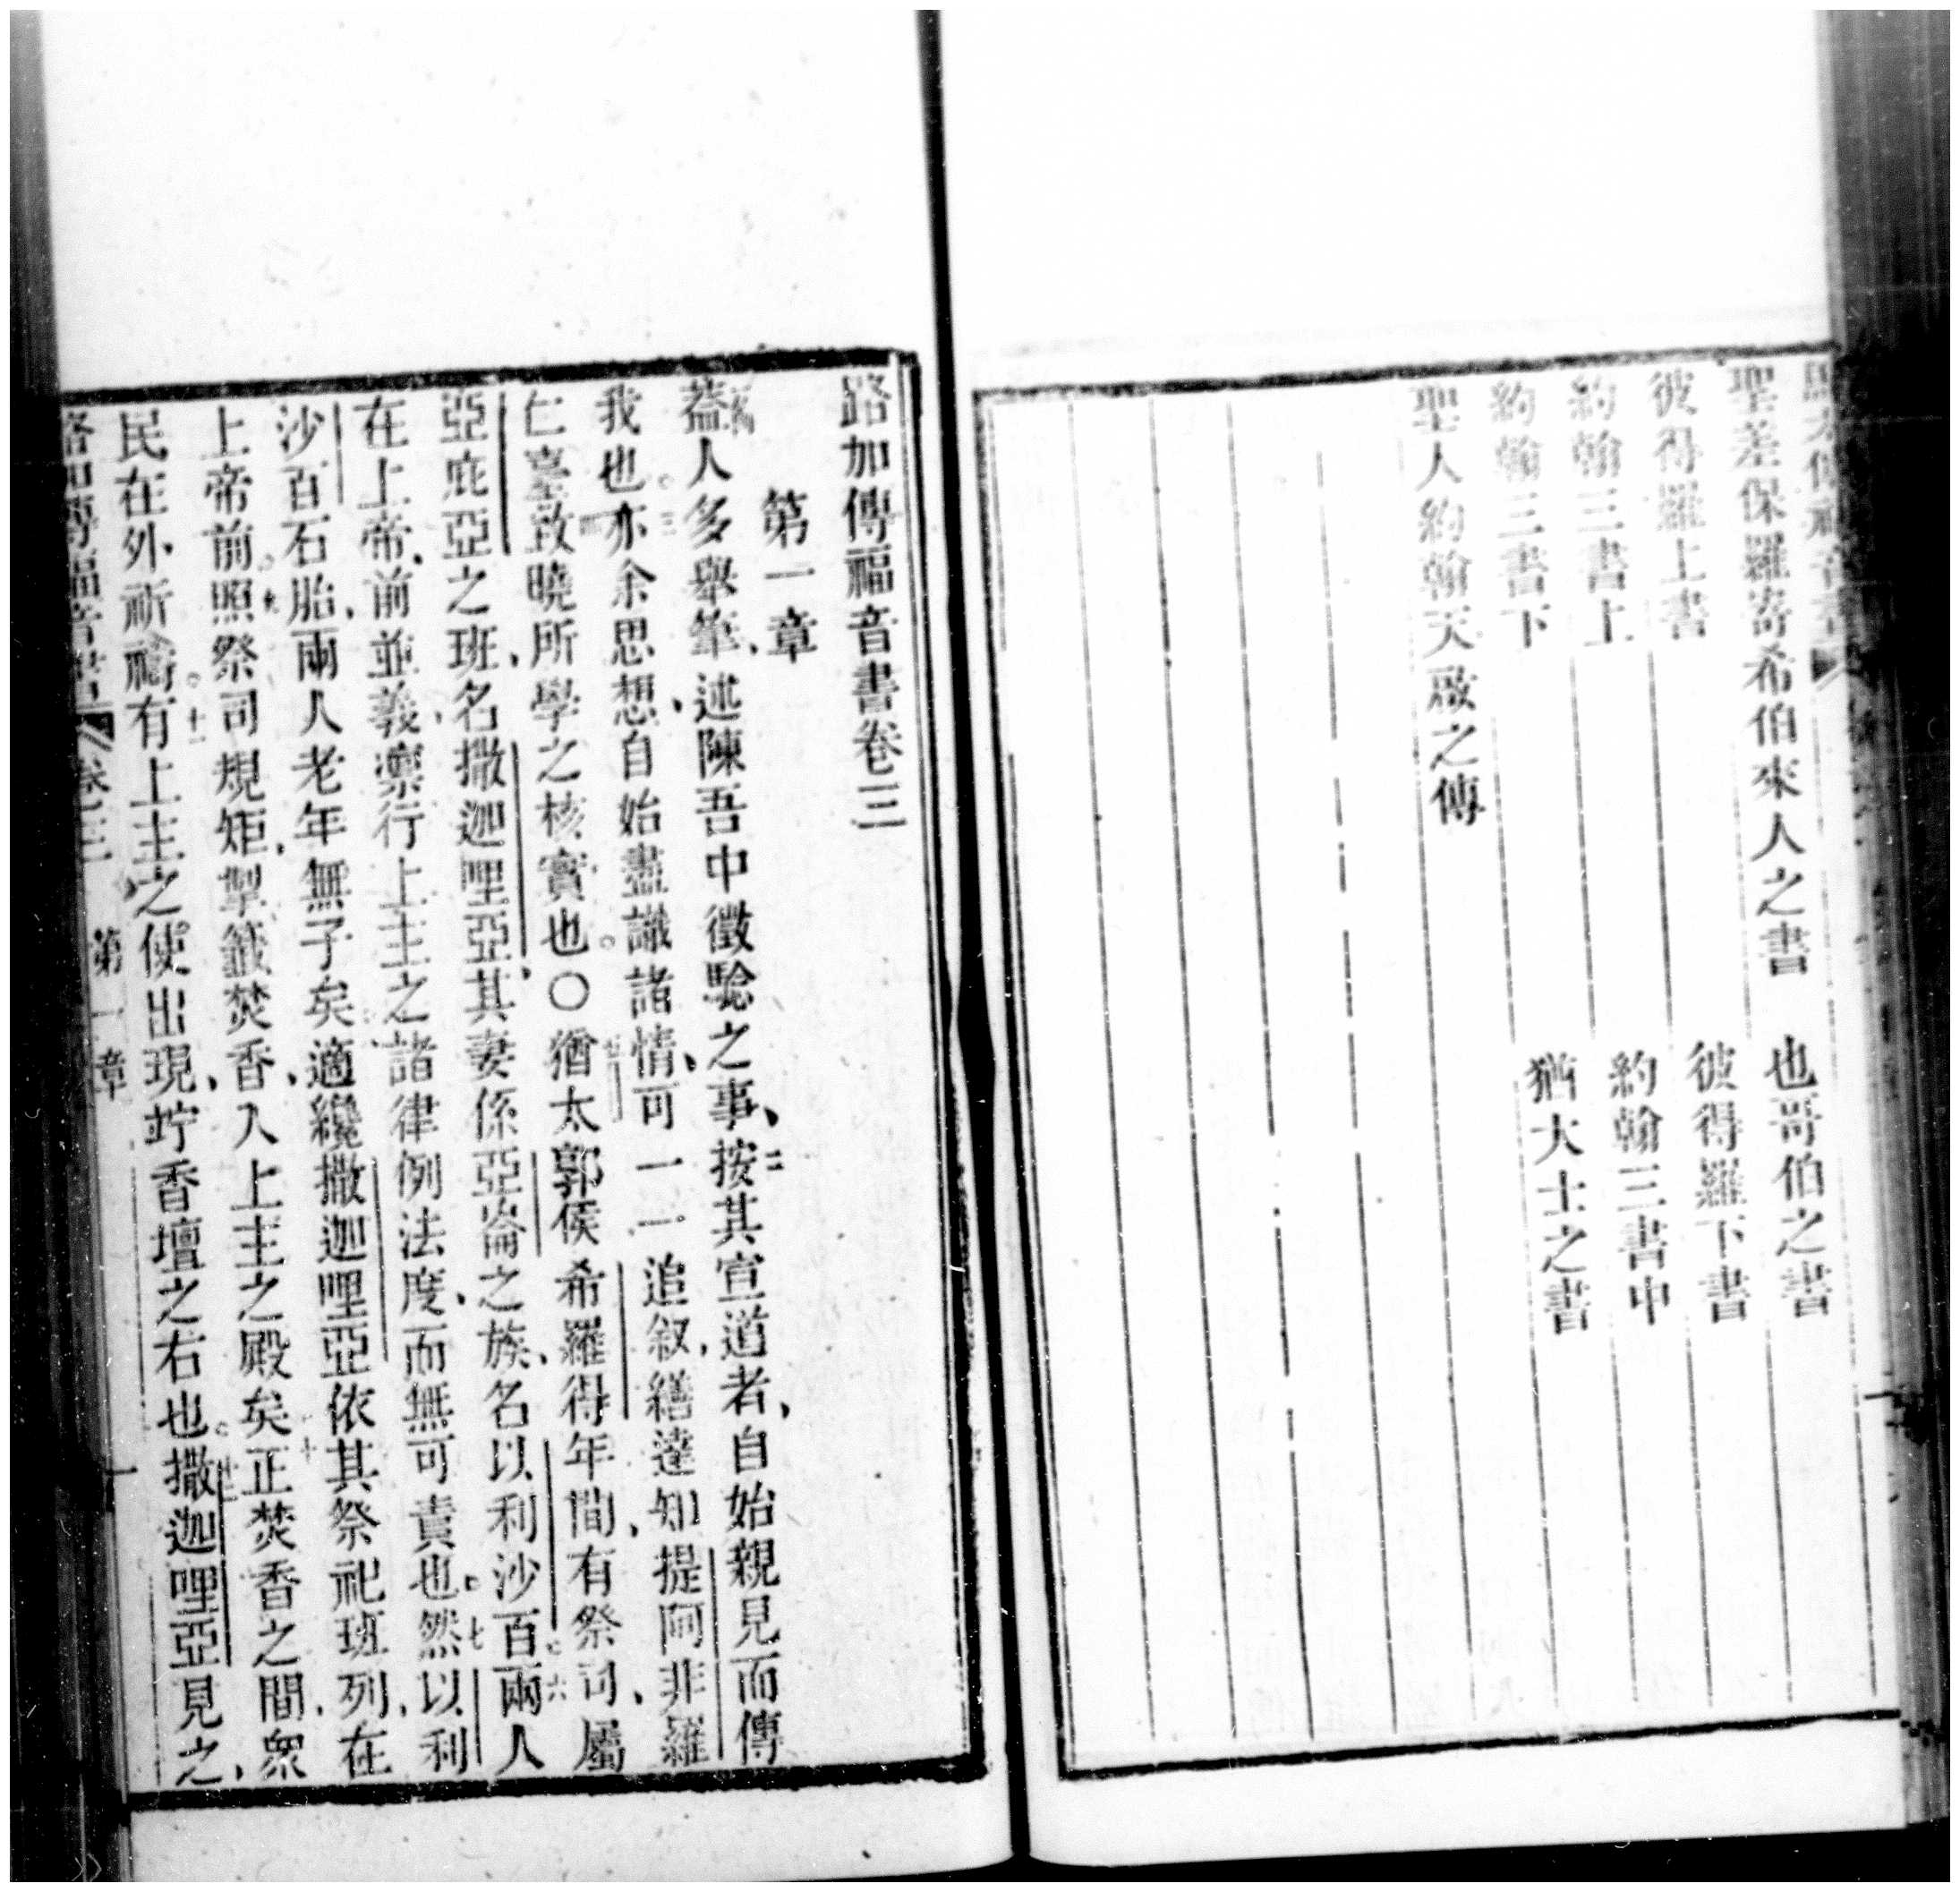 聖差保羅寄希伯來人之書　也哥伯之書
彼得羅上書　彼得羅下書
約翰三書上　約翰三書中
約翰三書下　猶大士之書
聖人約翰天啟之傳
路加傳福音書卷三
第一章
蓋人多舉筆、述陳吾中徵驗之事、二按其宣道者、自始親見而傳
我也。三亦余思想、自始盡識諸情、可一一追叙、繕達知提阿非羅
仁臺、四致曉所學之核實也。〇五猶太郭侯希羅得年間、有祭司、屬
亞庇亞之班、名撒迦哩亞、其妻係亞崙之族、名以利沙百。六兩人
在上帝前並義、凛行上主之諸律例法度、而無可責也。七然以利
沙百石胎、兩人老年無子矣。適纔撒迦哩亞依其祭祀班列、在
上帝前。九照祭司規矩、掣籤焚香、入上主之殿矣。十正焚香之間、衆
民在外祈禱。十一有上主之使出現、竚香壇之右也。十二撒迦哩亞見之、
路加傳福音書　卷三　第一章　一